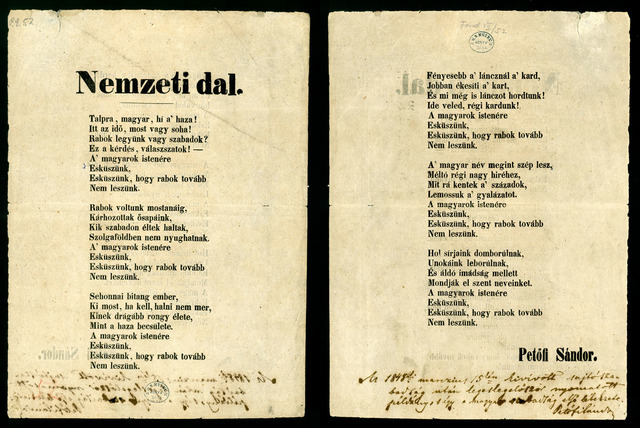 Nemzeti dal.
Talpra, magyar, hí a' haza!
Itt az idő, most vagy soha!
Rabok legyünk vagy szabadok?
Ez a' kérdés, válaszszatok! —
A' magyarok istenére
Esküszünk,
Esküszünk, hogy rabok tovább
Nem leszünk.
Rabok voltunk mostanáig,
Kárhozottak ősapáink,
Kik szabadon éltek haltak,
Szolgaföldben nem nyughatnak.
A' magyarok istenére
Esküszünk,
Esküszünk, hogy rabok tovább
Nem leszünk.
Sehonnai bitang ember,
Ki most, ha kell, halni nem mer,
Kinek drágább rongy élete,
Mint a haza becsülete.
A magyarok istenére
Esküszünk,
Esküszünk, hogy rabok tovább
Nem leszünk.
Fényesebb a' láncznál a' kard,
Jobban ékesíti a' kart,
És mi még is lánczot hordtunk!
Ide veled, régi kardunk!
A magyarok istenére
Esküszünk,
Esküszünk, hogy rabok tovább
Nem leszünk.
A' magyar név megint szép lesz,
Méltó régi nagy hiréhez,
Mit rá kentek a' századok,
Lemossuk a' gyalázatot.
A magyarok istenére
Esküszünk,
Esküszünk, hogy rabok tovább
Nem leszünk.
Hol sírjaink domborúlnak,
Unokáink leborúlnak,
És áldó imádság mellett
Mondják el szent neveinket.
A magyarok istenére
Esküszünk,
Esküszünk, hogy rabok tovább
Nem leszünk.
Petőfi Sándor.
Az 1848ki marczius 15én kivívott sajtószabadság után legeslegelőször nyomatott
példány, s így a magyar szabadság első lélekzete.
Petőfi Sándor